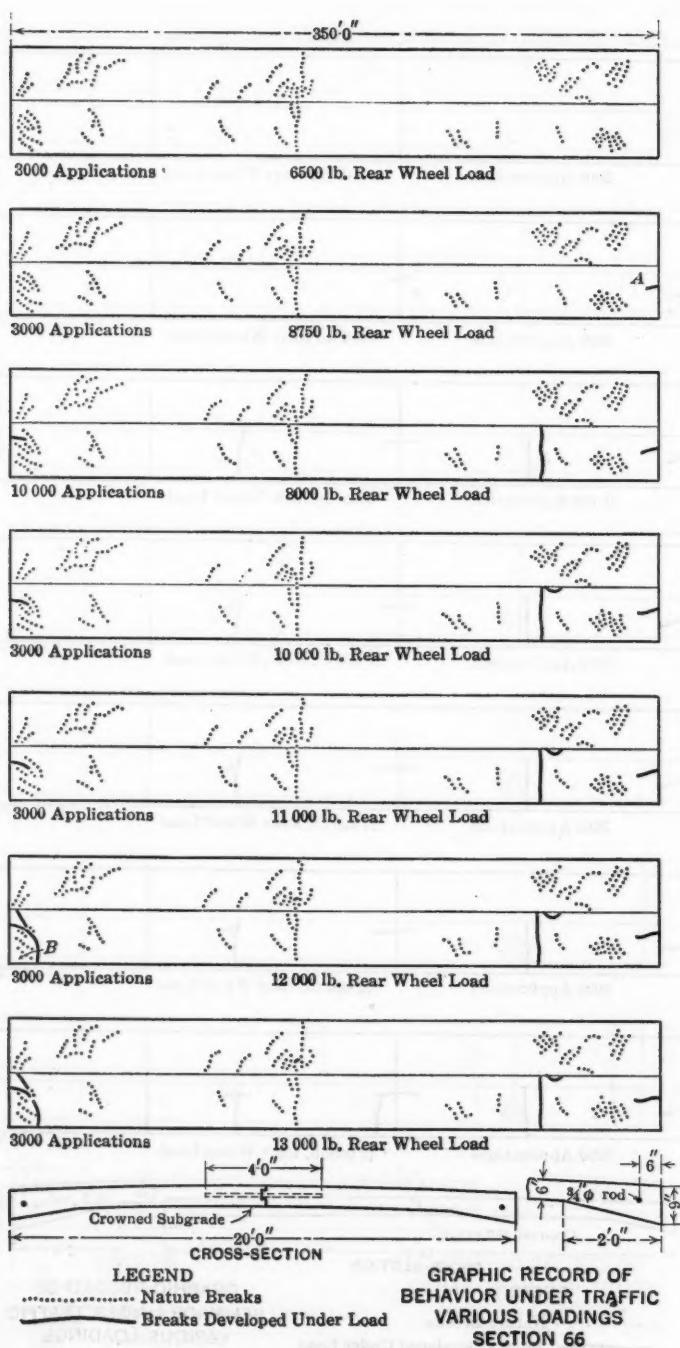 350'-0"
3000 Applications 6500 lb. Rear Wheel Load
A
3000 Applications 8750 lb. Rear Wheel Load
10 000 Applications 8000 lb. Rear Wheel Load
3000 Applications 10 000 lb. Rear Wheel Load
3000 Applications 11 000 lb. Rear Wheel Load
B
3000 Applications 12 000 lb. Rear Wheel Load
3000 Applications 13 000 lb. Rear Wheel Load
4'-0" 6"
6" ¾"φ rod 9"
Crowned Subgrade
20'-0" 2'-0"
CROSS-SECTION
LEGEND
Nature Breaks
Breaks Developed Under Load
GRAPHIC RECORD OF
BEHAVIOR UNDER TRAFFIC
VARIOUS LOADINGS
SECTION 66